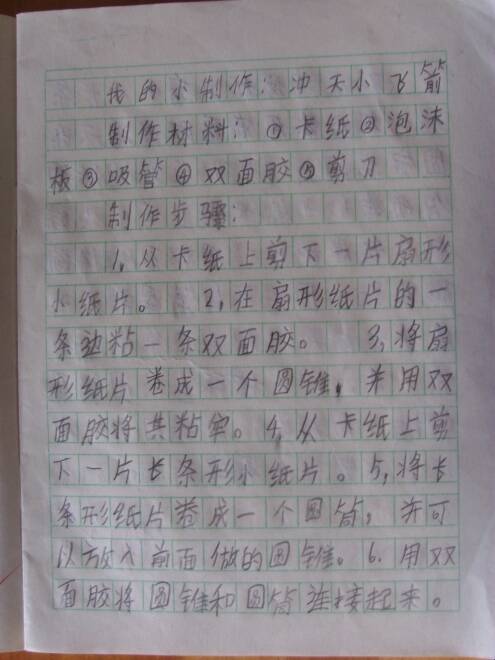 我的小制作：冲天小飞箭
制作材料：①卡纸②泡沫
板③吸管④双面胶⑤剪刀
制作步骤：
1，从卡纸上剪下一片扇形
小纸片。 2，在扇形纸片的一
条边粘一条双面胶。 3，将扇
形纸片卷成一个圆锥，并用双
面胶将其粘牢。4，从卡纸上剪
下一片长条形小纸片。5，将长
条形纸片卷成一个圆筒，并可
以放入前面做的圆锥。6.用双
面胶将圆锥和圆筒连接起来。